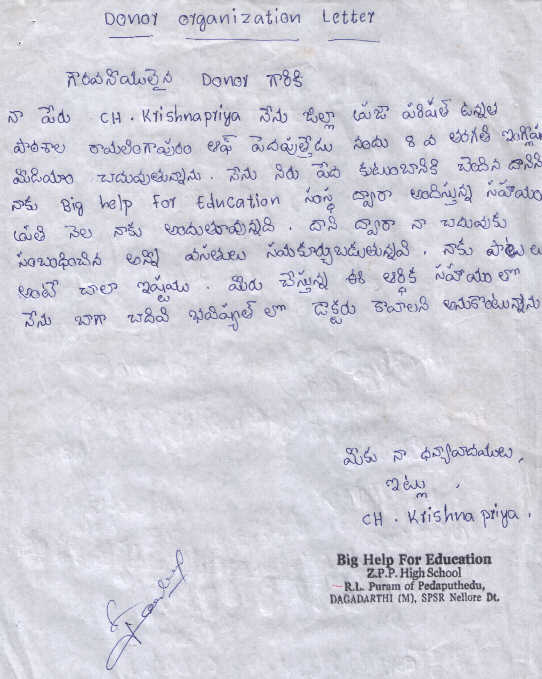 Donor organization Letter
గౌరవనీయులైన Donor గారికి
నా పేరు CH. Krishnapriya నేను జిల్లా ప్రజా పరిషత్ ఉన్నత
పాఠశాల రామలింగాపురం ఆఫ్ పెదపుత్తేడు నందు 8 వ తరగతి ఇంగ్లీషు
మీడియం చదువుతున్నాను. నేను నిరు పేద కుటుంబానికి చెందిన దానిని
నాకు Big help For Education సంస్థ ద్వారా అందిస్తున్న సహాయం
ప్రతి నెల నాకు అందుతూవున్నది. దాని ద్వారా నా చదువుకు
సంబంధించిన అన్ని వసతులు సమకూర్చుబడుతున్నవి. నాకు పాటలు
అంటే చాలా ఇష్టము. మీరు చేస్తున్న ఈ ఆర్థిక సహాయం లో
నేను బాగా చదివి భవిష్యత్ లో డాక్టరు కావాలని అనుకొంటున్నాను
మీకు నా ధన్యావాదములు,
ఇట్లు,
CH. Krishna priya.
Big Help For Education
Z.P.P. High School
R.L. Puram of Pedaputhedu,
DAGADARTHI (M), SPSR Nellore Dt.